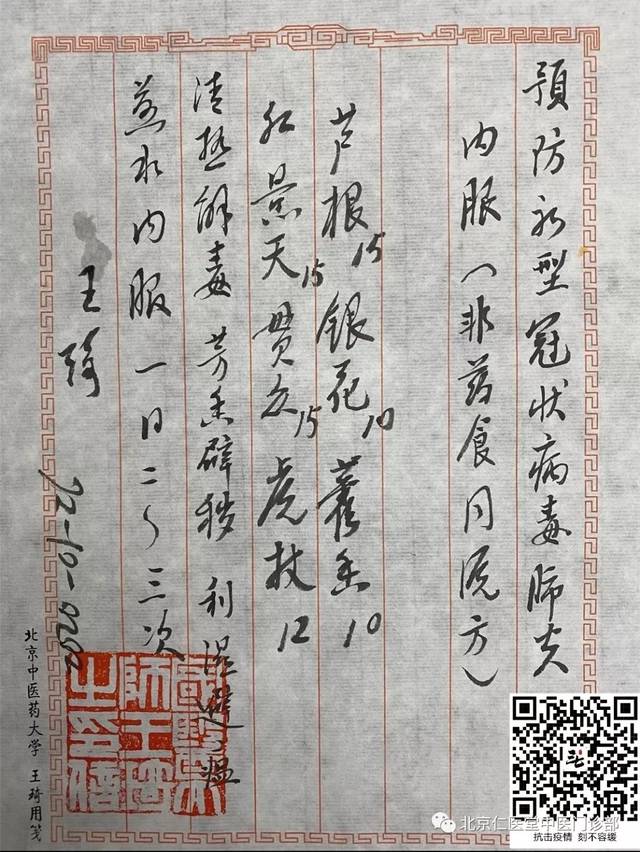 预防新型冠状病毒肺炎
内服（非药食同源方）
芦根15 银花10 藿香10
红景天15 贯众15 虎杖12
清热解毒 芳香辟秽 利湿避瘟
煎水内服一日二～三次
王琦
2020-01-22
国医大师王琦之印信
北京中医药大学 王琦用笺
北京仁医堂中医门诊部
抗击疫情 刻不容缓